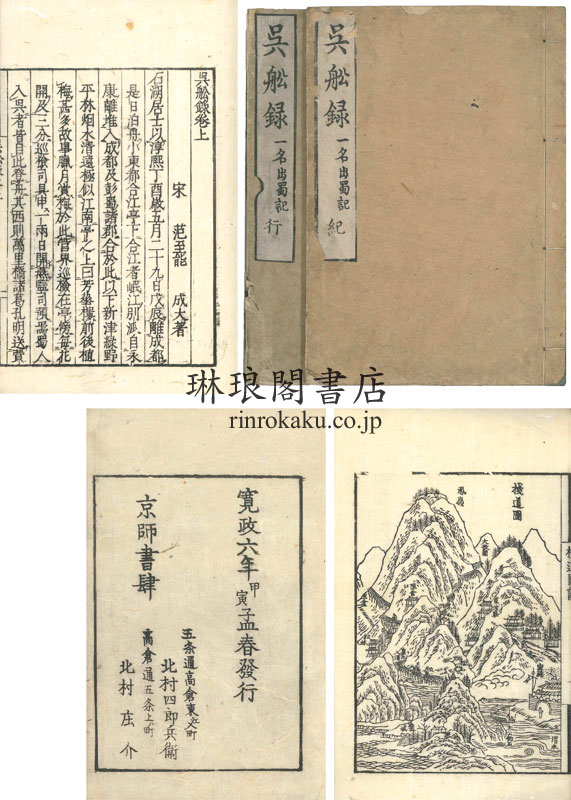 吳船録卷上
宋 范至能 成大著
石湖居士以淳熙丁酉歲五月二十九日戊辰離成都
是日泊舟小東郭合江亭下合江者岷江別派自永
康離堆入成都及彭蜀諸郡合於此以下新津綠野
平林烟水清遠極似江南亭之上曰芳華樓前後植
梅甚多故事臘月賞梅於此管界巡檢在亭傍每花
開及三分巡檢司具申一兩日開燕監司預焉蜀人
入吳者皆自此登舟其西則萬里橋諸葛孔明送費
吳船録 一名出蜀記 行
吳船録 一名出蜀記 紀
琳琅閣書店
rinrokaku.co.jp
寛政六年甲寅孟春發行
京師書肆
五条通高倉東入町
北村四郎兵衞
高倉通五条上ル町
北村庄介
棧道圖